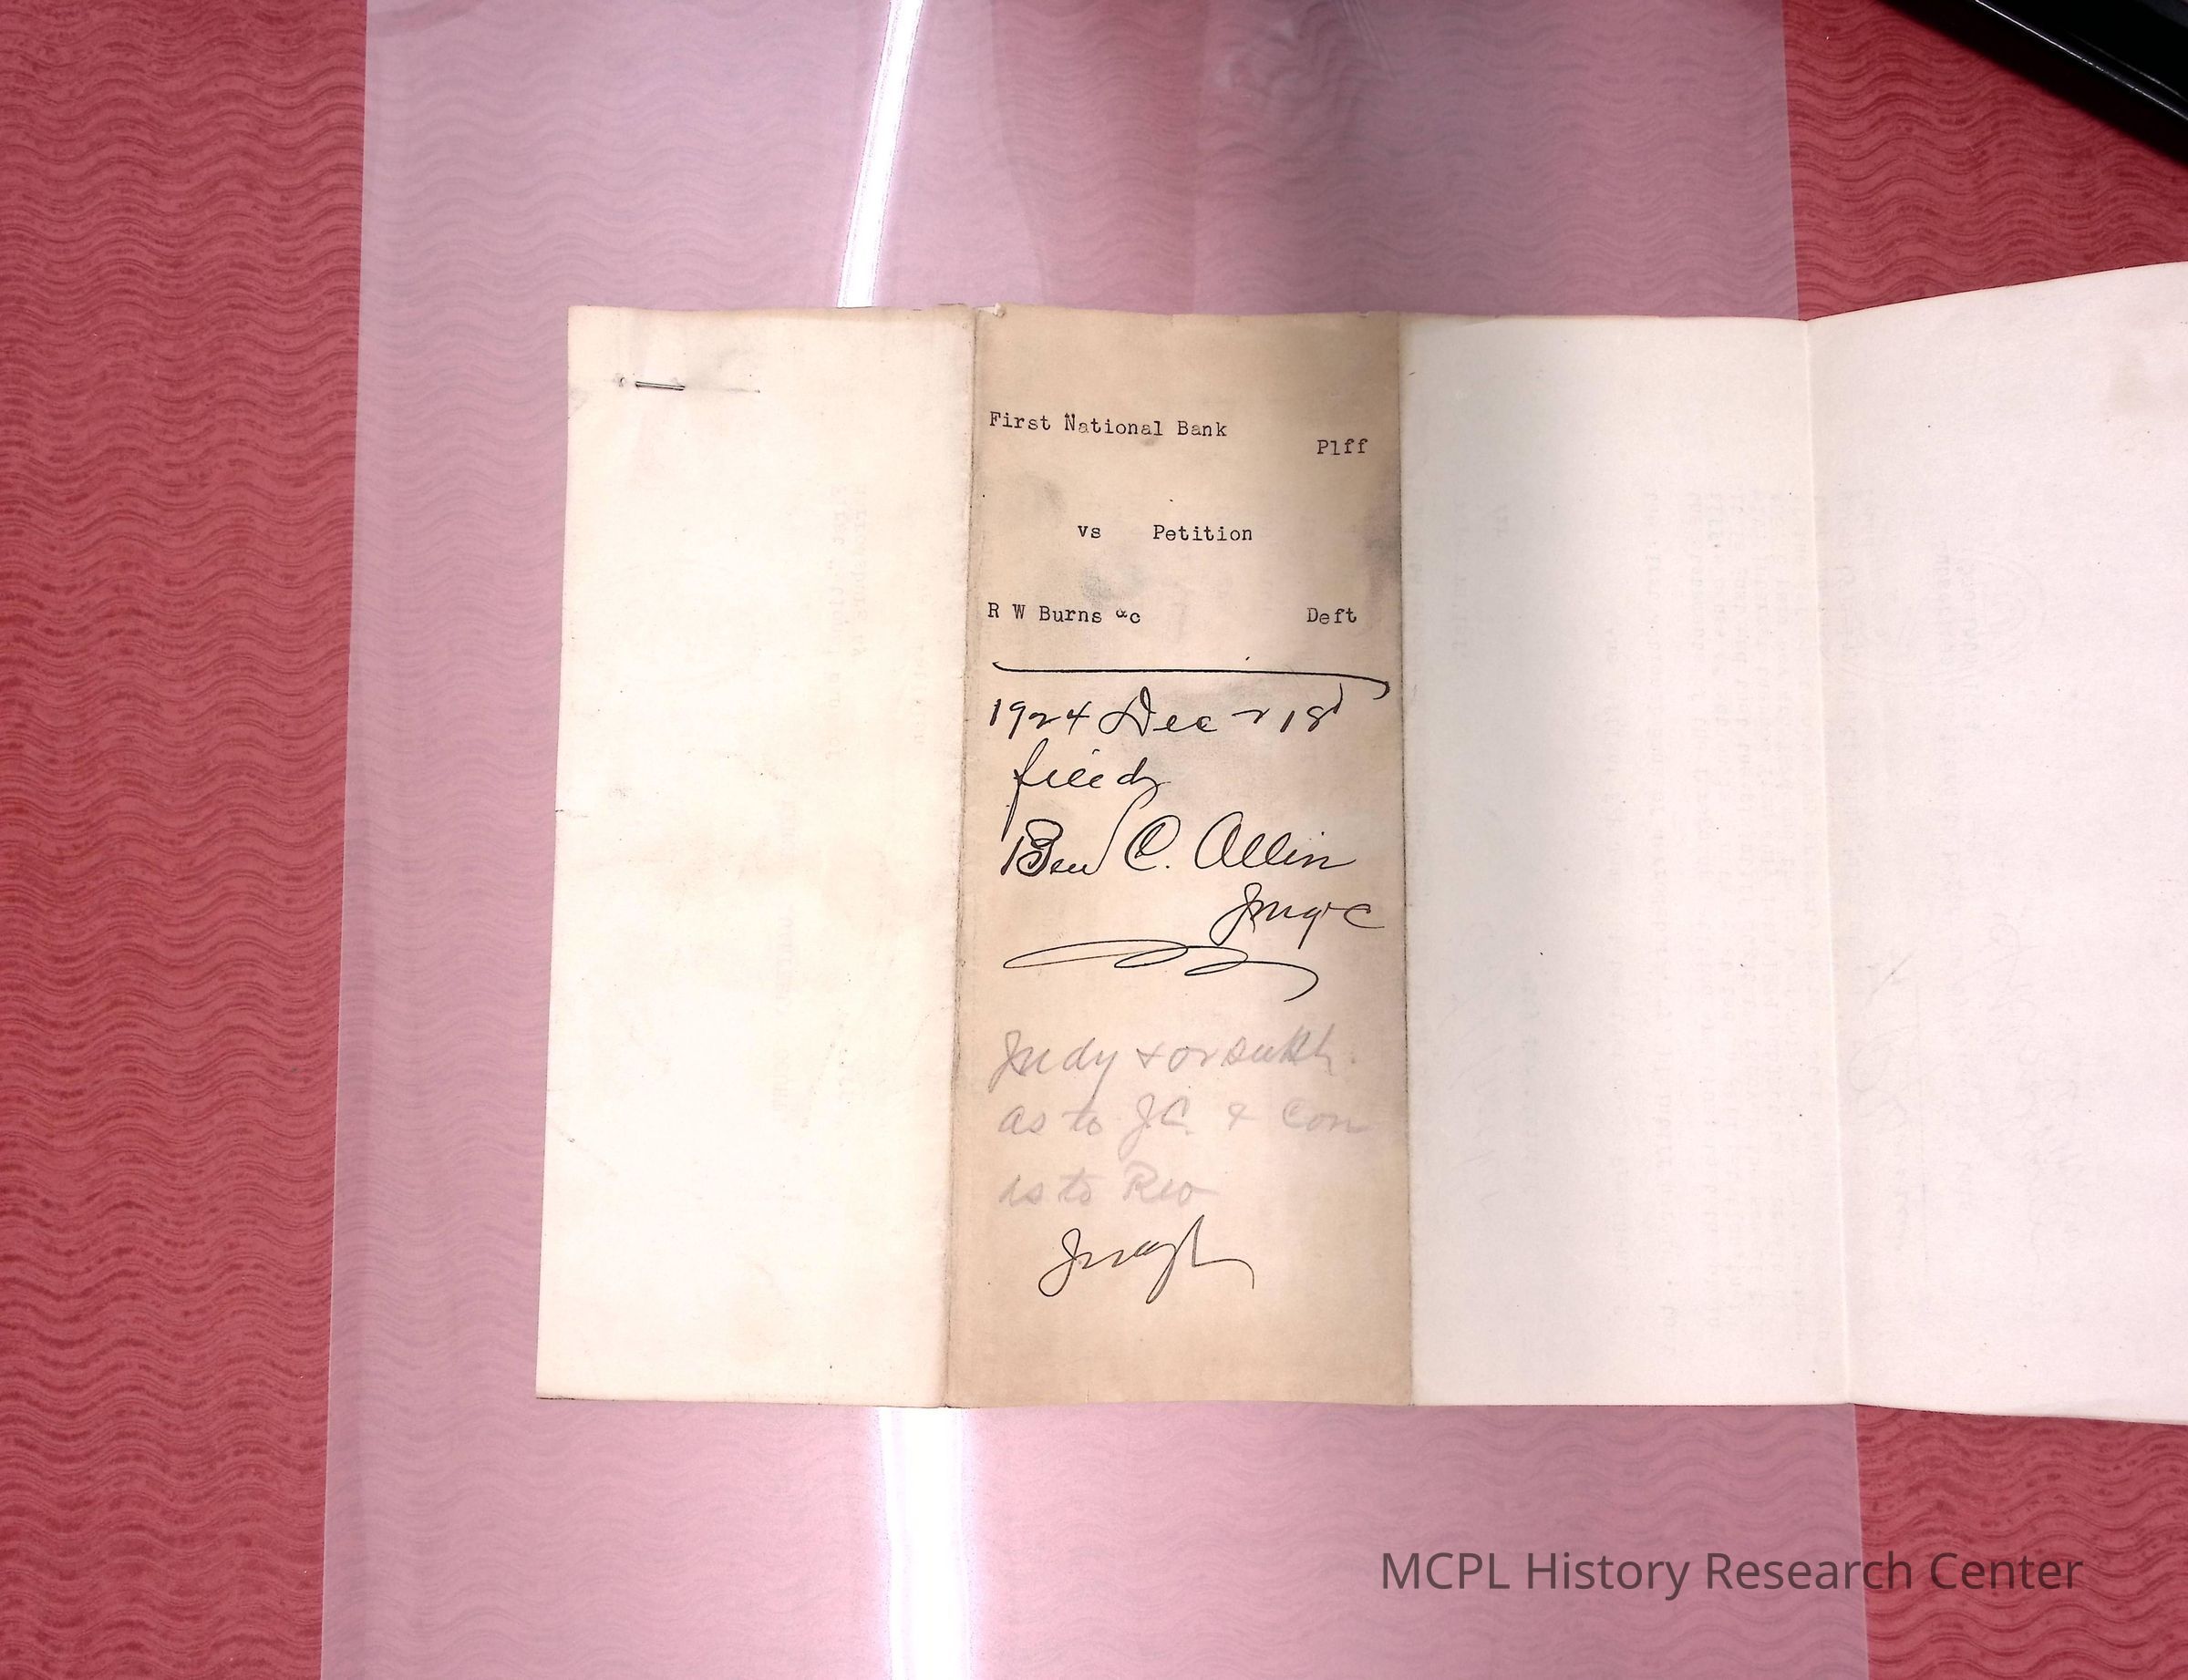 First National Bank
Plff
vs Petition
R W Burns &c Deft
1924 Dec
filed
Ben C. Allin
Judy & or
as to J.C. & Con
as to Rev
MCPL History Research Center